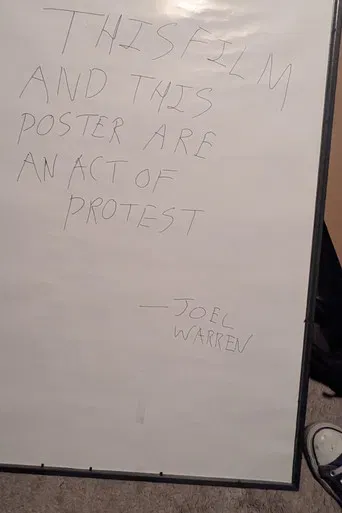 THIS FILM
AND THIS
POSTER ARE
AN ACT OF
PROTEST
— JOEL
WARREN